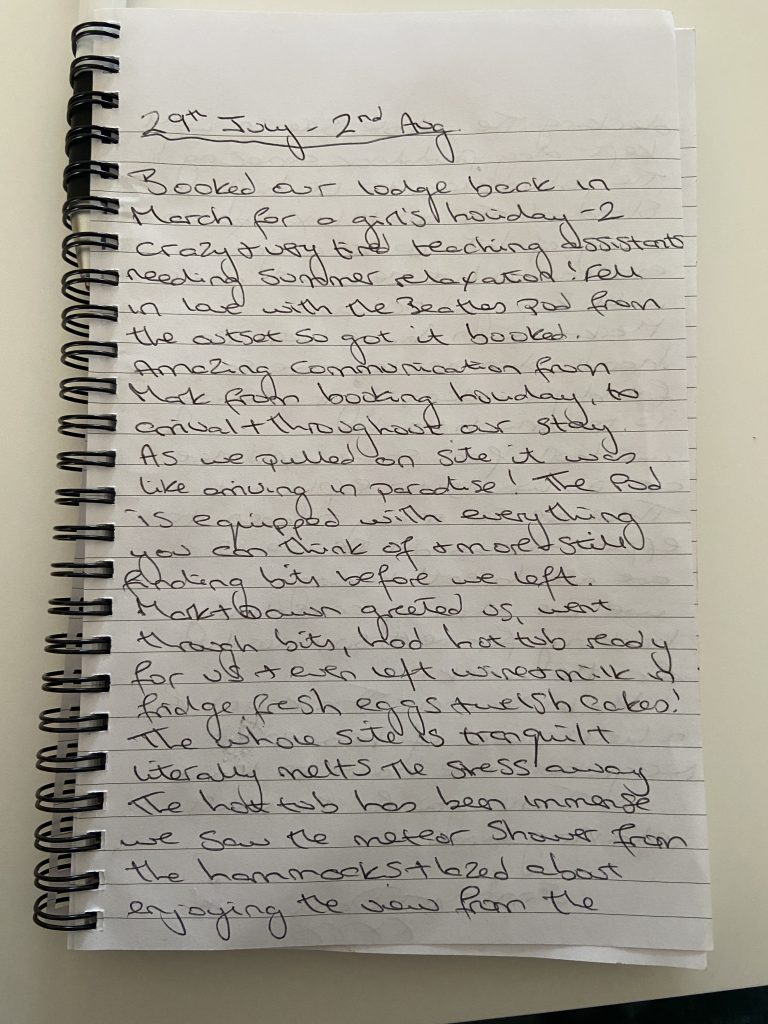 29th July - 2nd Aug.
Booked our lodge back in
March for a girl's holiday - 2
crazy + very tired teaching assistants
needing summer relaxation! Fell
in love with the Beatles pod from
the outset so got it booked.
Amazing communication from
Mark from booking holiday, to
arrival + throughout our stay.
As we pulled on site it was
like arriving in paradise! The Pod
is equipped with everything
you can think of + more + still
finding bits before we left.
Mark + Dawn greeted us, went
through bits, had hot tub ready
for us + even left wine + milk in
fridge fresh eggs + welsh cakes!
The whole site is tranquil +
literally melts the stress away
The hot tub has been immense
we saw the meteor shower from
the hammocks + lazed about
enjoying the view from the